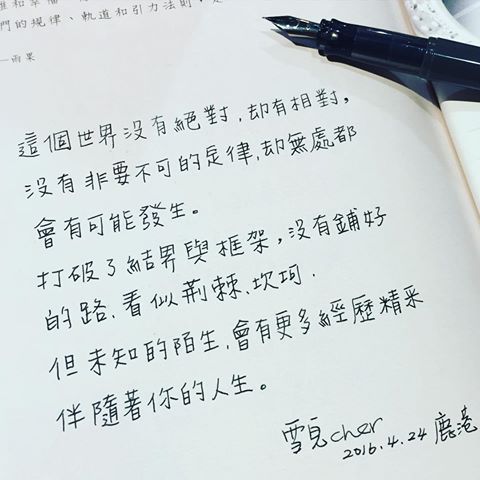 們的規律、軌道和引力法則
—雨果
這個世界沒有絕對,却有相對,
沒有非要不可的定律,却無處都
會有可能發生。
打破了結界與框架,沒有鋪好
的路、看似荆棘、坎坷.
但未知的陌生,會有更多經歷精采
伴隨著你的人生。
雪見cher
2016.4.24 鹿港